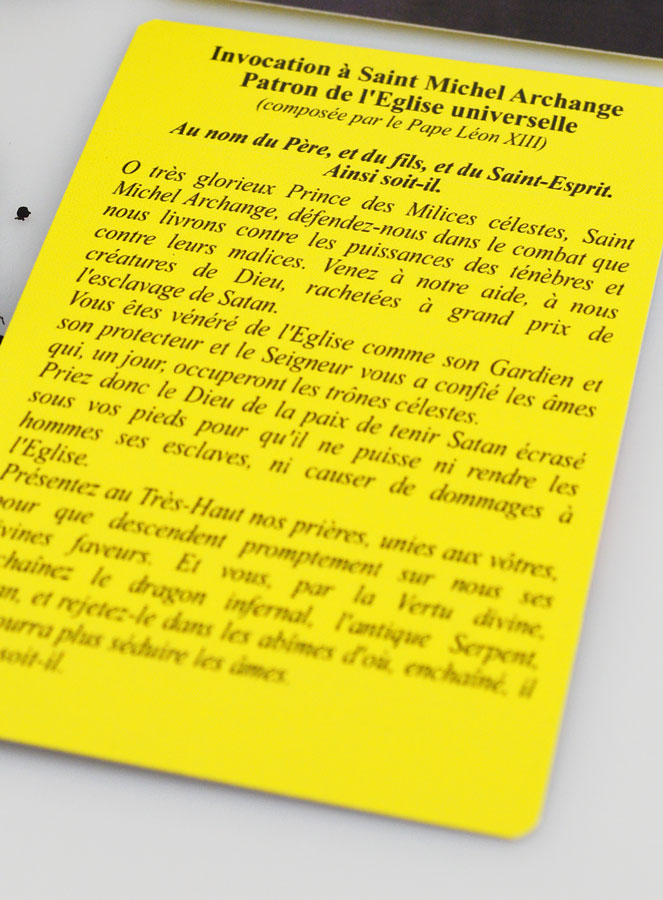 Invocation à Saint Michel Archange
Patron de l'Eglise universelle
(composée par le Pape Léon XIII)
Au nom du Père, et du fils, et du Saint-Esprit.
Ainsi soit-il.
O très glorieux Prince des Milices célestes, Saint
Michel Archange, défendez-nous dans le combat que
nous livrons contre les puissances des ténèbres et
contre leurs malices. Venez à notre aide, à nous
créatures de Dieu, rachetées à grand prix de
l'esclavage de Satan.
Vous êtes vénéré de l'Eglise comme son Gardien et
son protecteur et le Seigneur vous a confié les âmes
qui, un jour, occuperont les trônes célestes.
Priez donc le Dieu de la paix de tenir Satan écrasé
sous vos pieds pour qu'il ne puisse ni rendre les
hommes ses esclaves, ni causer de dommages à
l'Eglise.
Présentez au Très-Haut nos prières, unies aux vôtres,
pour que descendent promptement sur nous ses
faveurs. Et vous, par la Vertu divine,
le dragon infernal, l'antique Serpent,
et rejetez-le dans les abîmes d'où, enchaîné, il
plus séduire les âmes.
soit-il.